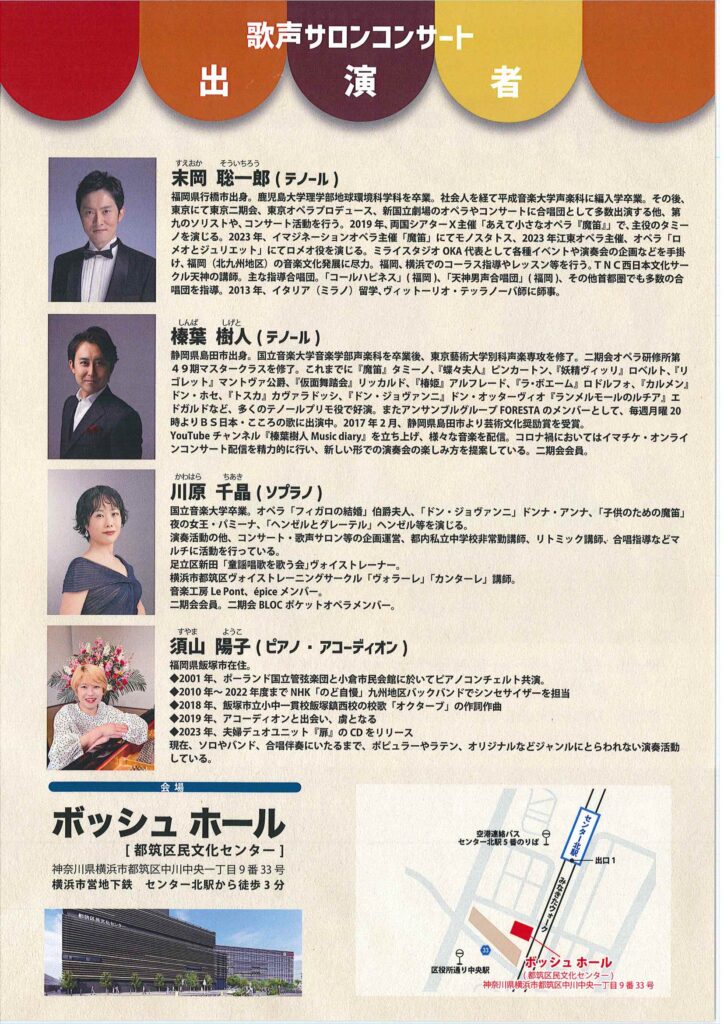 歌声サロンコンサート
出演者
すえおか そういちろう
末岡 聡一郎 ( テノール )
福岡県行橋市出身。鹿児島大学理学部地球環境科学科を卒業。社会人を経て平成音楽大学声楽科に編入学卒業。その後、
東京にて東京二期会、東京オペラプロデュース、新国立劇場のオペラやコンサートに合唱団として多数出演する他、第
九のソリストや、コンサート活動を行う。2019年、両国シアターX主催「あえて小さなオペラ『魔笛』」で、主役のタミー
ノを演じる。2023年、イマジネーションオペラ主催「魔笛」にてモノスタトス、2023年江東オペラ主催、オペラ「ロ
メオとジュリエット」にてロメオ役を演じる。ミライスタジオOKA代表として各種イベントや演奏会の企画などを手掛
け、福岡（北九州地区）の音楽文化発展に尽力。福岡、横浜でのコーラス指導やレッスン等を行う。TNC西日本文化サー
クル天神の講師。主な指導合唱団。「コールハピネス」( 福岡 )、「天神男声合唱団」( 福岡 )、その他首都圏でも多数の合
唱団を指導。2013年、イタリア（ミラノ）留学、ヴィットーリオ・テッラノーバ師に師事。
しんば しげと
榛葉 樹人 ( テノール )
静岡県島田市出身。国立音楽大学音楽学部声楽科を卒業後、東京藝術大学別科声楽専攻を修了。二期会オペラ研修所第
４９期マスタークラスを修了。これまでに『魔笛』タミーノ、『蝶々夫人』ピンカートン、『妖精ヴィッリ』ロベルト、『リ
ゴレット』マントヴァ公爵、『仮面舞踏会』リッカルド、『椿姫』アルフレード、『ラ・ボエーム』ロドルフォ、『カルメン』
ドン・ホセ、『トスカ』カヴァラドッシ、『ドン・ジョヴァンニ』ドン・オッターヴィオ『ランメルモールのルチア』エ
ドガルドなど、多くのテノールプリモ役で好演。またアンサンブルグループFORESTAのメンバーとして、毎週月曜20
時よりＢＳ日本・こころの歌に出演中。2017年2月、静岡県島田市より芸術文化奨励賞を受賞。
YouTubeチャンネル『榛葉樹人Music diary』を立ち上げ、様々な音楽を配信。コロナ禍においてはイマチケ・オンライ
ンコンサート配信を精力的に行い、新しい形での演奏会の楽しみ方を提案している。二期会会員。
かわはら ちあき
川原 千晶 ( ソプラノ )
国立音楽大学卒業。オペラ「フィガロの結婚」伯爵夫人、「ドン・ジョヴァンニ」ドンナ・アンナ、「子供のための魔笛」
夜の女王・パミーナ、「ヘンゼルとグレーテル」ヘンゼル等を演じる。
演奏活動の他、コンサート・歌声サロン等の企画運営、都内私立中学校非常勤講師、リトミック講師、合唱指導などマ
ルチに活動を行っている。
足立区新田「童謡唱歌を歌う会」ヴォイストレーナー。
横浜市都筑区ヴォイストレーニングサークル「ヴォラーレ」「カンターレ」講師。
音楽工房Le Pont、épiceメンバー。
二期会会員。二期会BLOCポケットオペラメンバー。
すやま ようこ
須山 陽子 ( ピアノ ・ アコーディオン )
福岡県飯塚市在住。
◆2001年、ポーランド国立管弦楽団と小倉市民会館に於いてピアノコンチェルト共演。
◆2010年～2022年度までNHK「のど自慢」九州地区バックバンドでシンセサイザーを担当
◆2018年、飯塚市立小中一貫校飯塚鎮西校の校歌「オクターブ」の作詞作曲
◆2019年、アコーディオンと出会い、虜となる
◆2023年、夫婦デュオユニット『扉』のCDをリリース
現在、ソロやバンド、合唱伴奏にいたるまで、ポピュラーやラテン、オリジナルなどジャンルにとらわれない演奏活動
している。
会場
ボッシュ ホール
[ 都筑区民文化センター ]
神奈川県横浜市都筑区中川中央一丁目9番33号
横浜市営地下鉄 センター北駅から徒歩3分
都筑区民文化センター
空港連絡バス
センター北駅5番のりば
センター北駅
出口1
みなきたウォーク
33
区役所通り中央駅
ボッシュ ホール
( 都筑区民文化センター )
神奈川県横浜市都筑区中川中央一丁目9番33号